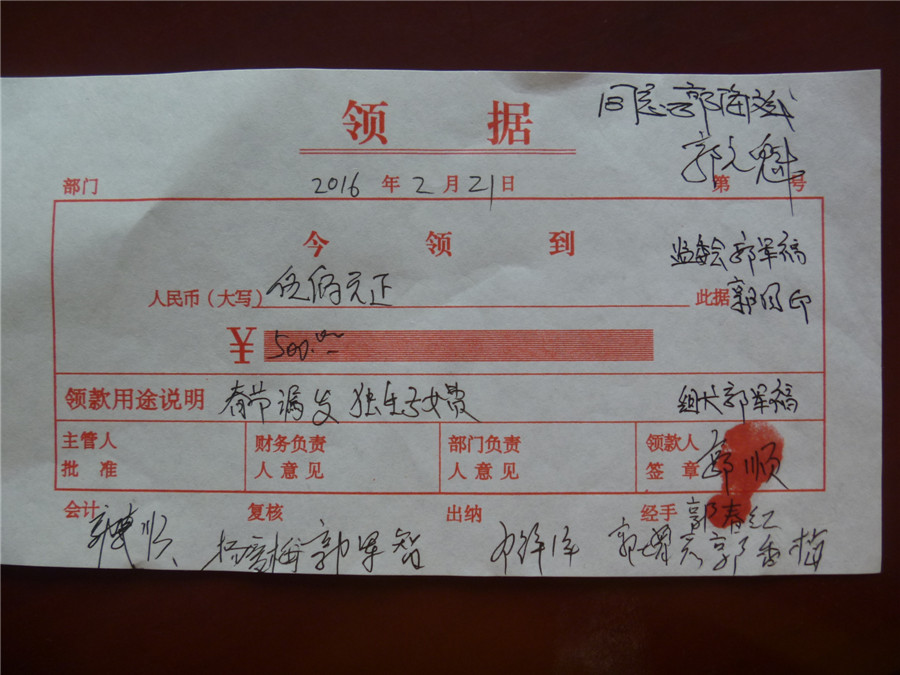 领 据
同意 郭海斌
郭文魁
部门 2016 年 2 月 21 日 第 号
今 领 到
监委会 郭军福
人民币（大写） 伍佰元正 此据
¥ 500.00
领款用途说明 春节漏发 独生子女费 组长郭军福
主管人 财务负责 部门负责 领款人
批 准 人意见 人意见 签 章 郭顺
会计 复核 出纳 经手 郭春红
郭军智 郭香梅